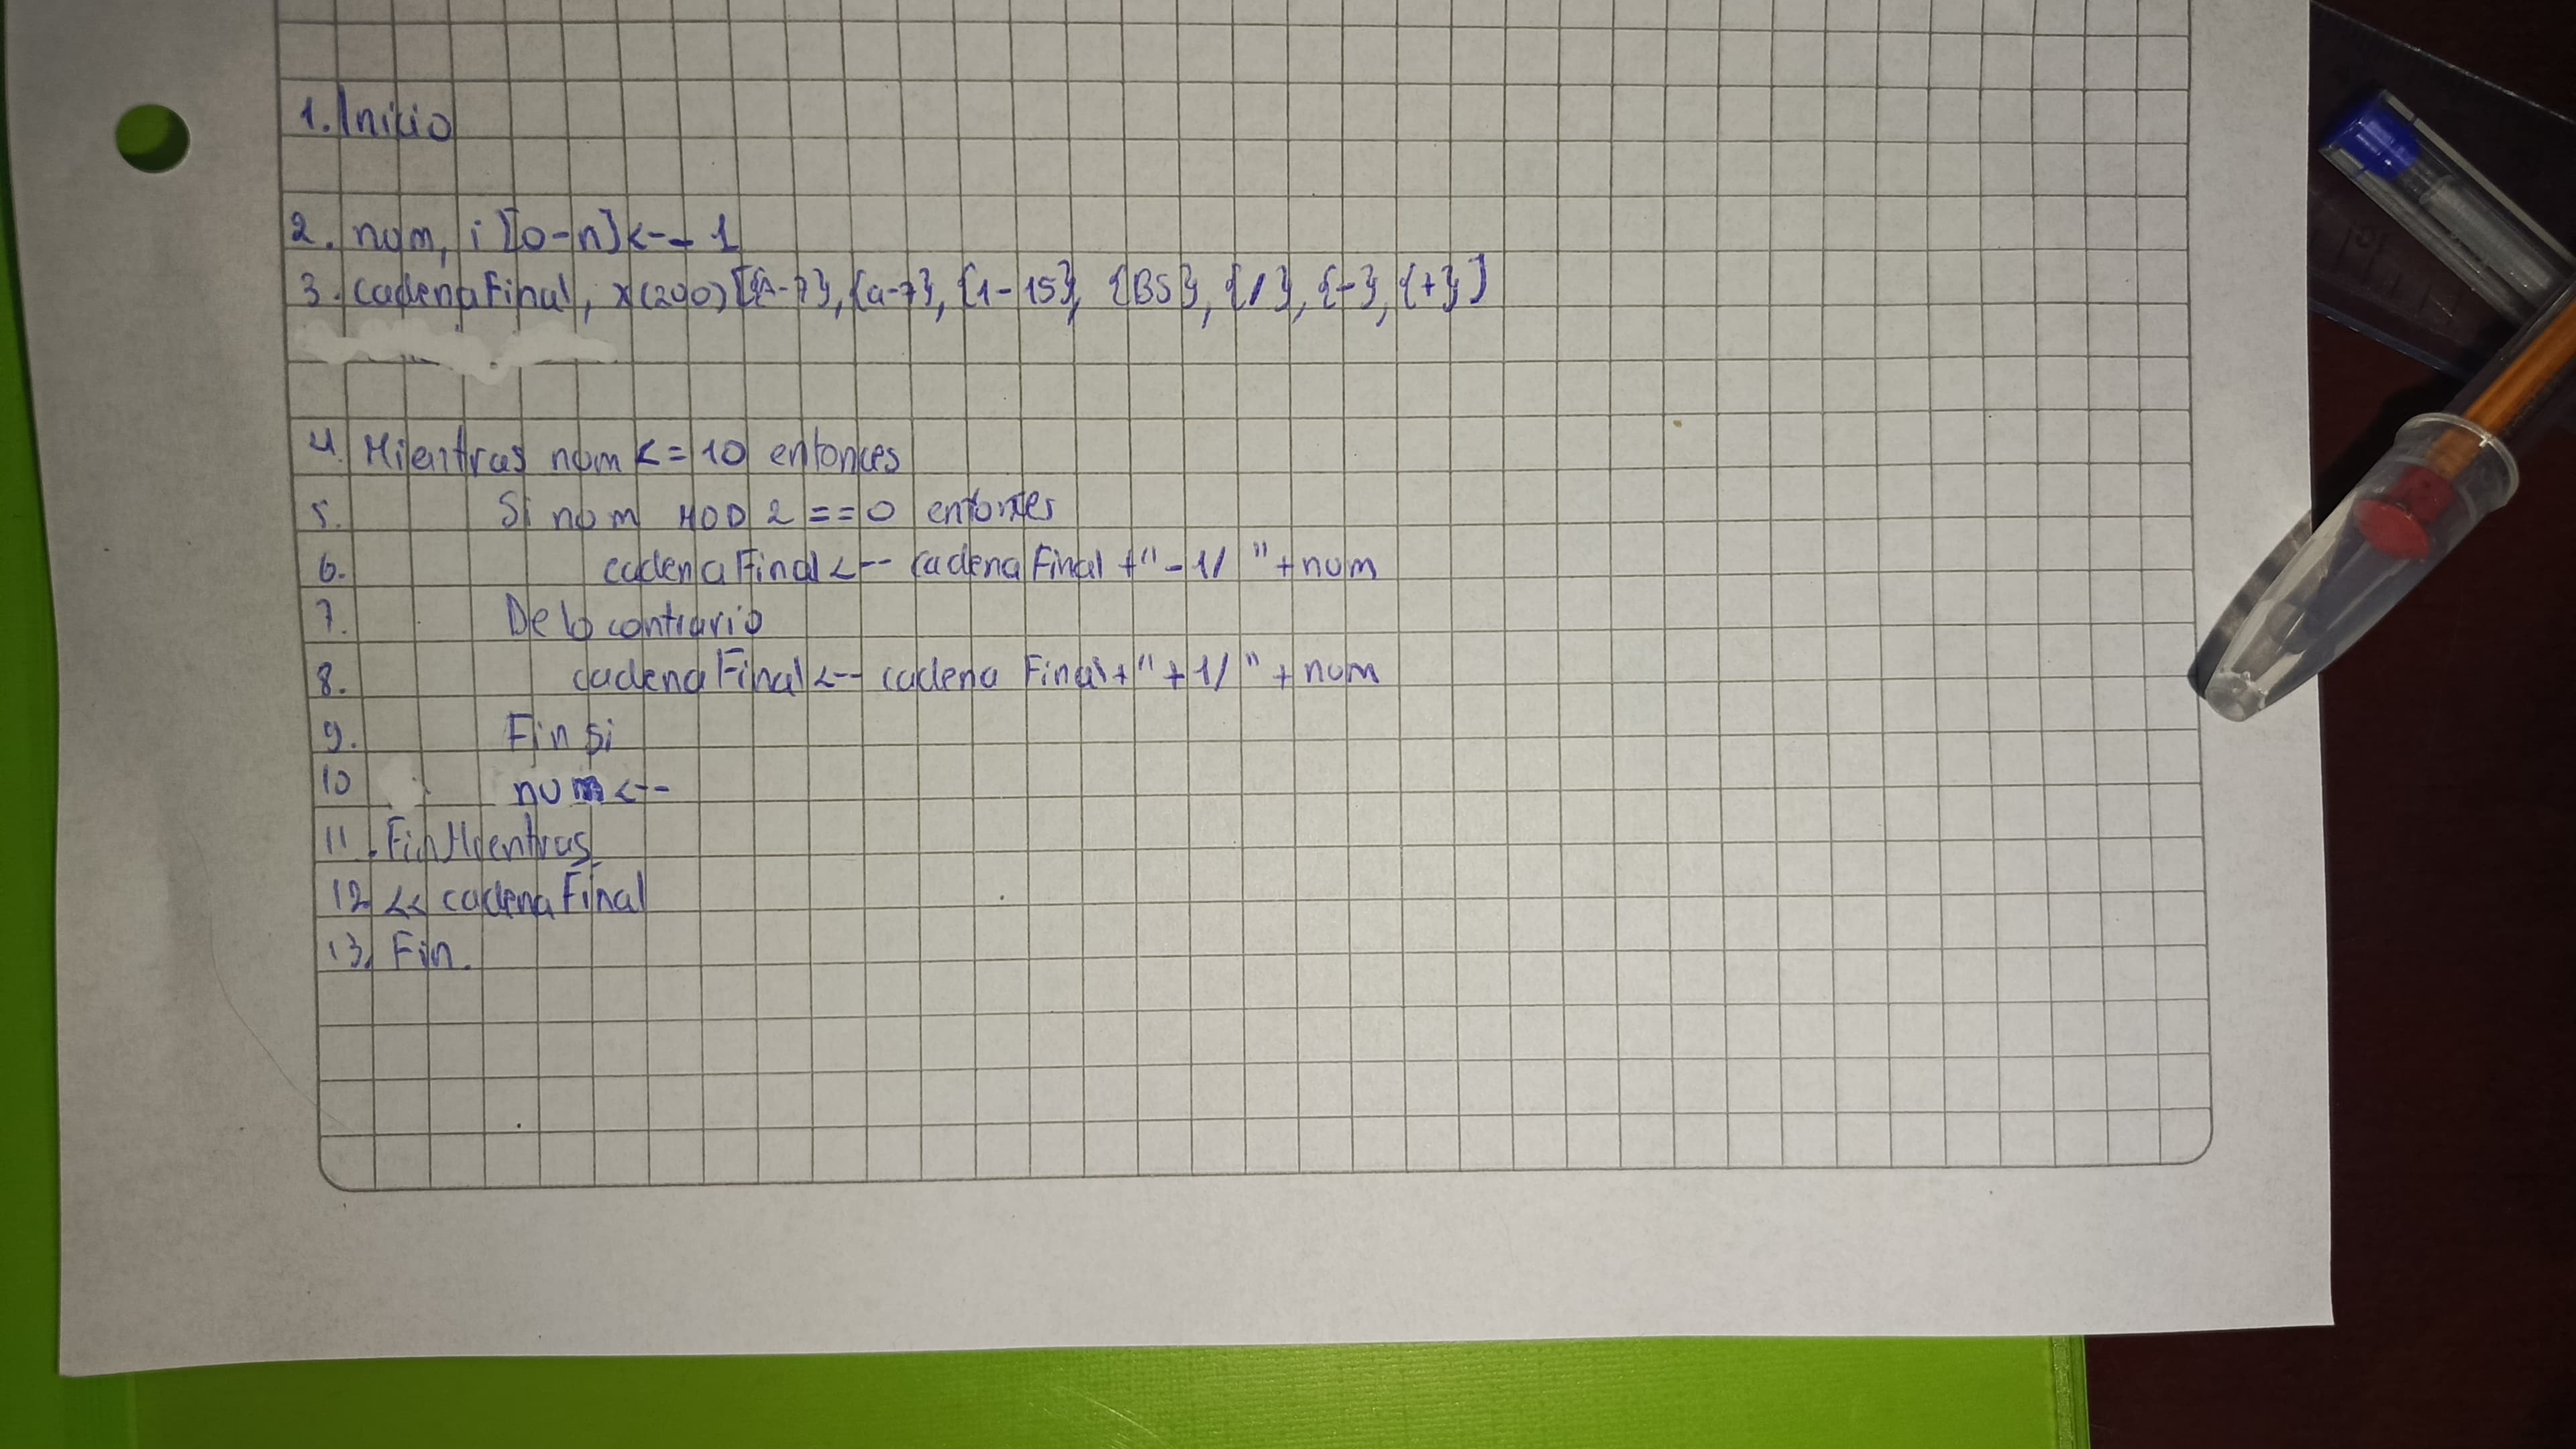 1. Inicio
2. num, i [0-n] <-- 1
3. cadenaFinal, x(200) [{A-z}, {a-z}, {1-15}, {BS}, {/}, {-}, {+}]
4. Mientras num <= 10 entonces
5. Si num MOD 2 == 0 entonces
6. cadenaFinal <-- cadenaFinal + "-1/" + num
7. De lo contrario
8. cadenaFinal <-- cadena Final + "+1/" + num
9. Fin si
10 num <--
11. Fin Mientras
12. << cadenaFinal
13. Fin.